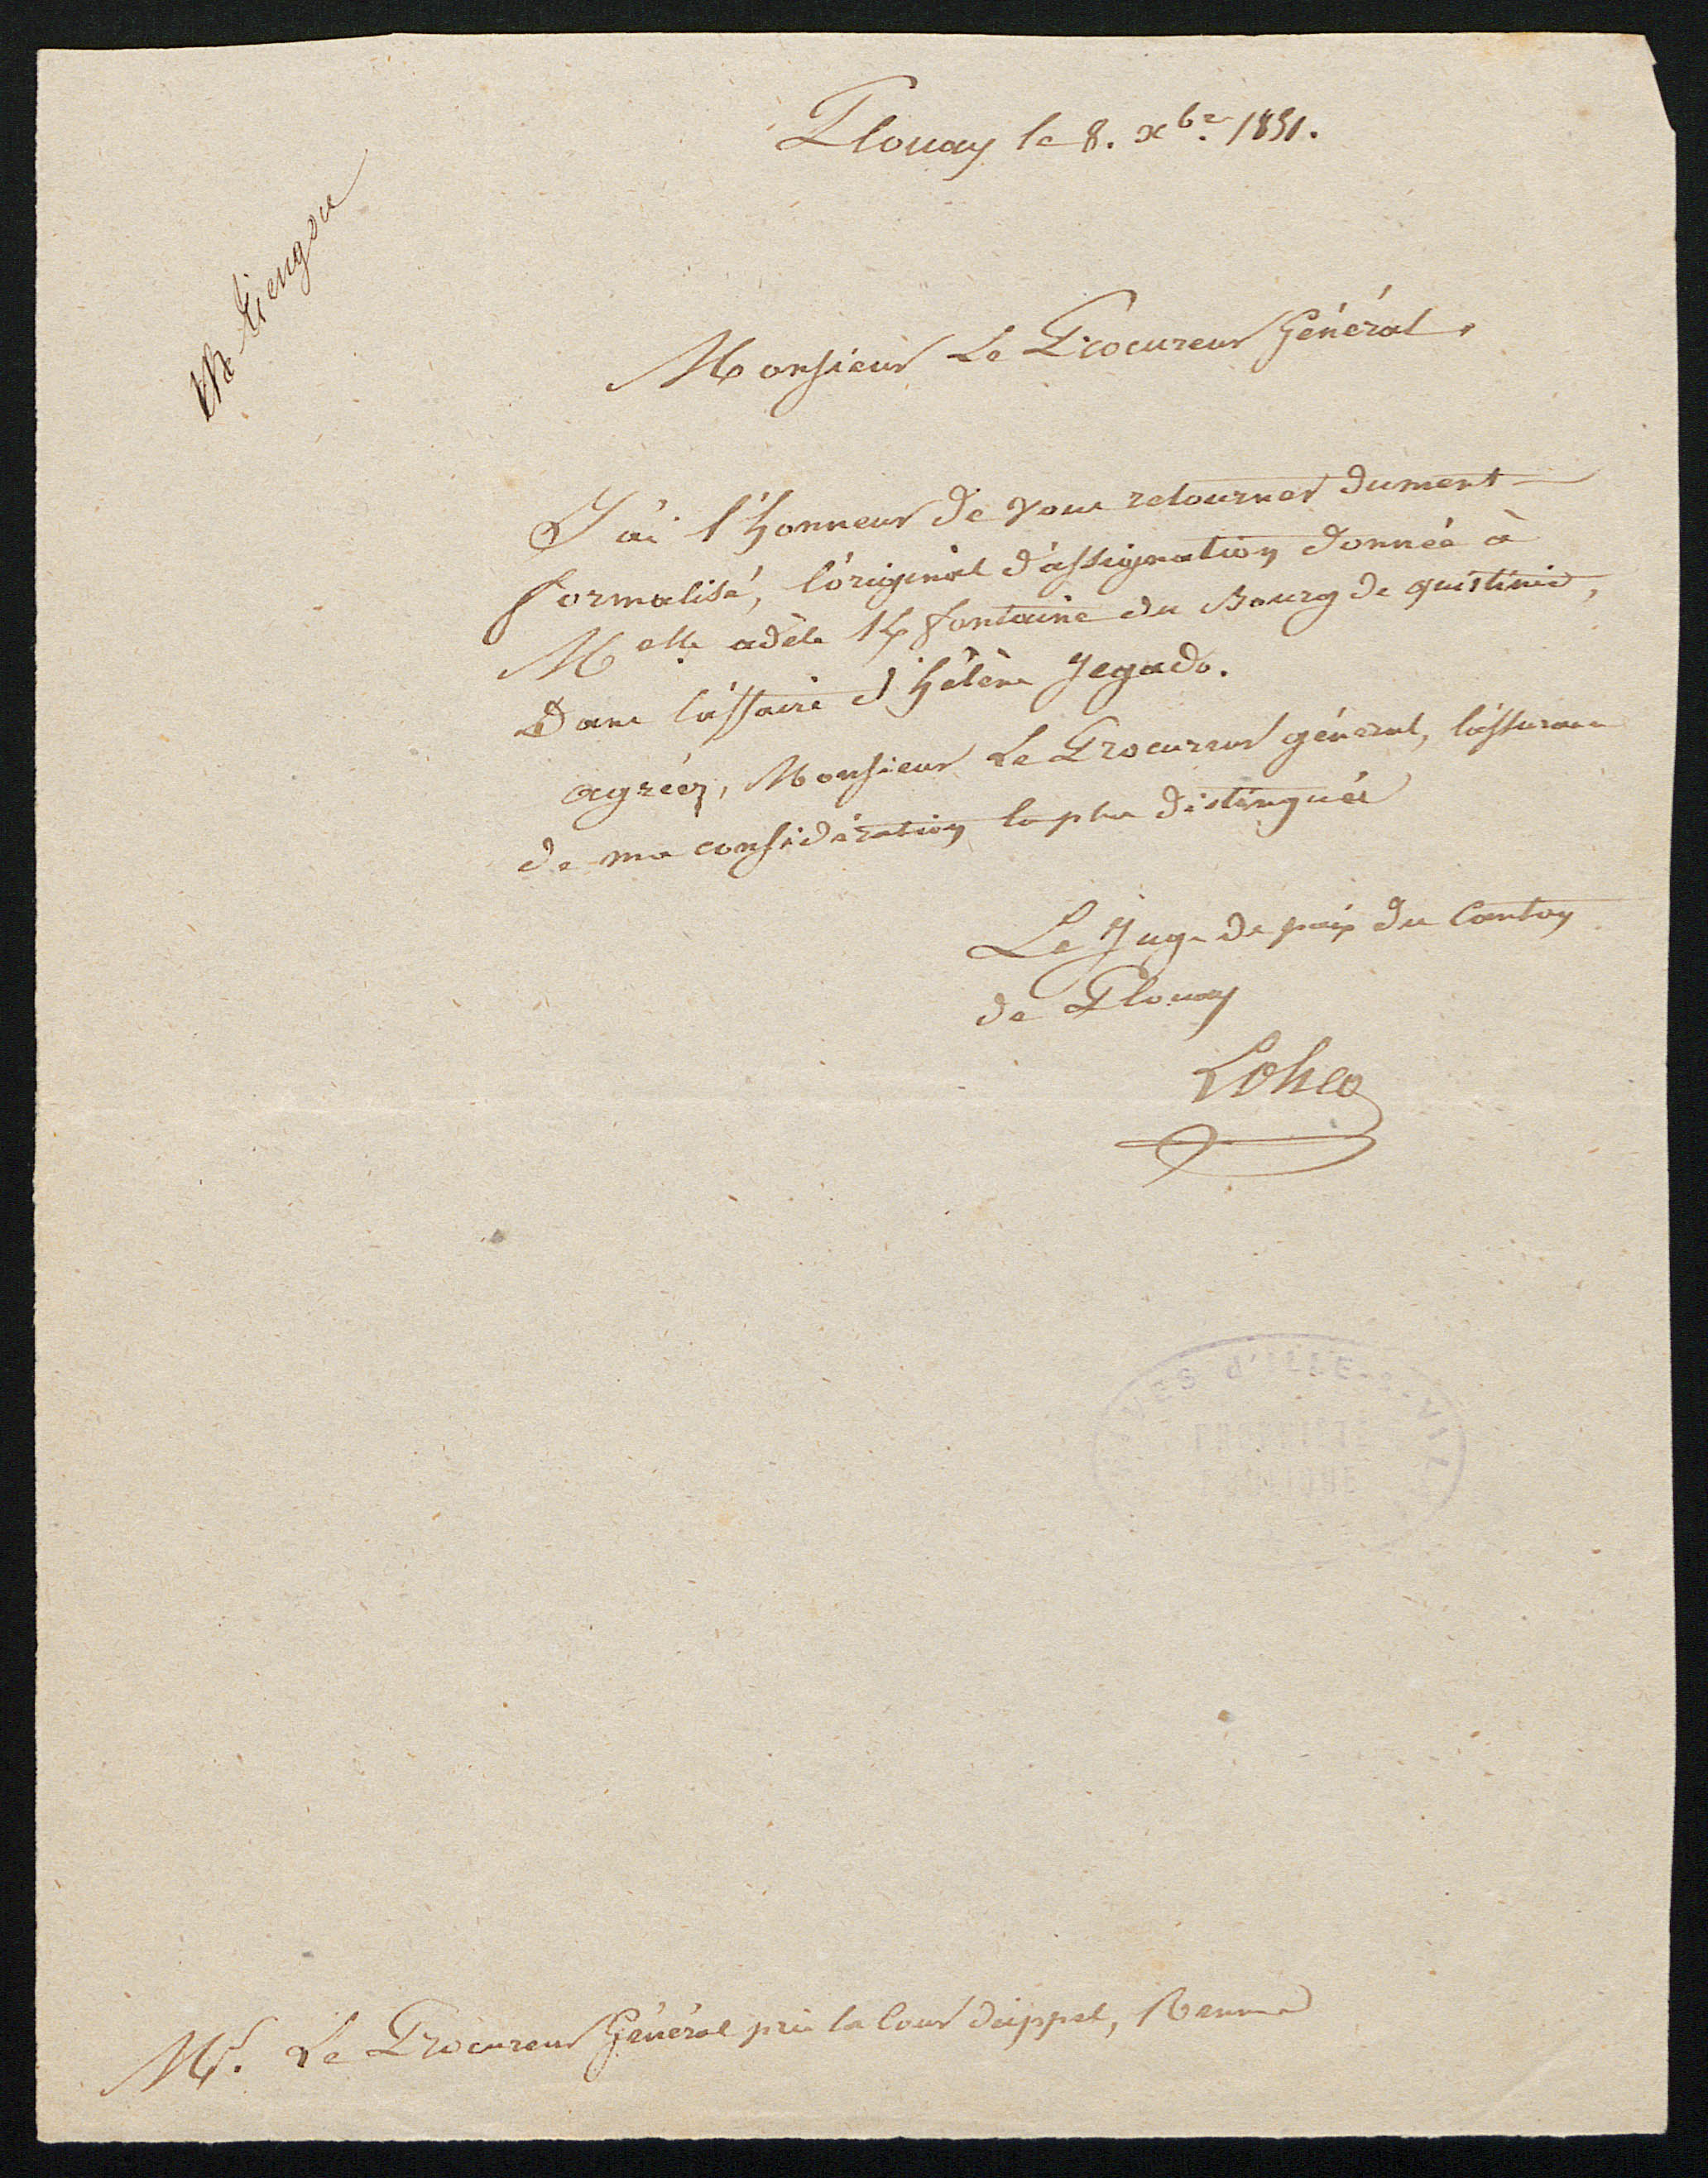 Plouay le 8. xbre 1851.
Monsieur Le Procureur Général,
J'ai l'honneur de vous retourner dument
formalisé, l'original d'assignation donnée à
Melle adèle fontaine du Bourg de quistinic,
Dans l'affaire d'hélène Jegado.
agréez, Monsieur Le Procureur général, l'assurance
de ma considération la plus distinguée
Le Juge de paix du Canton
de Plouay
Lohéo
VES d'ILLE-&-VIL
Mr. Le Procureur Général près la Cour d'appel, Rennes